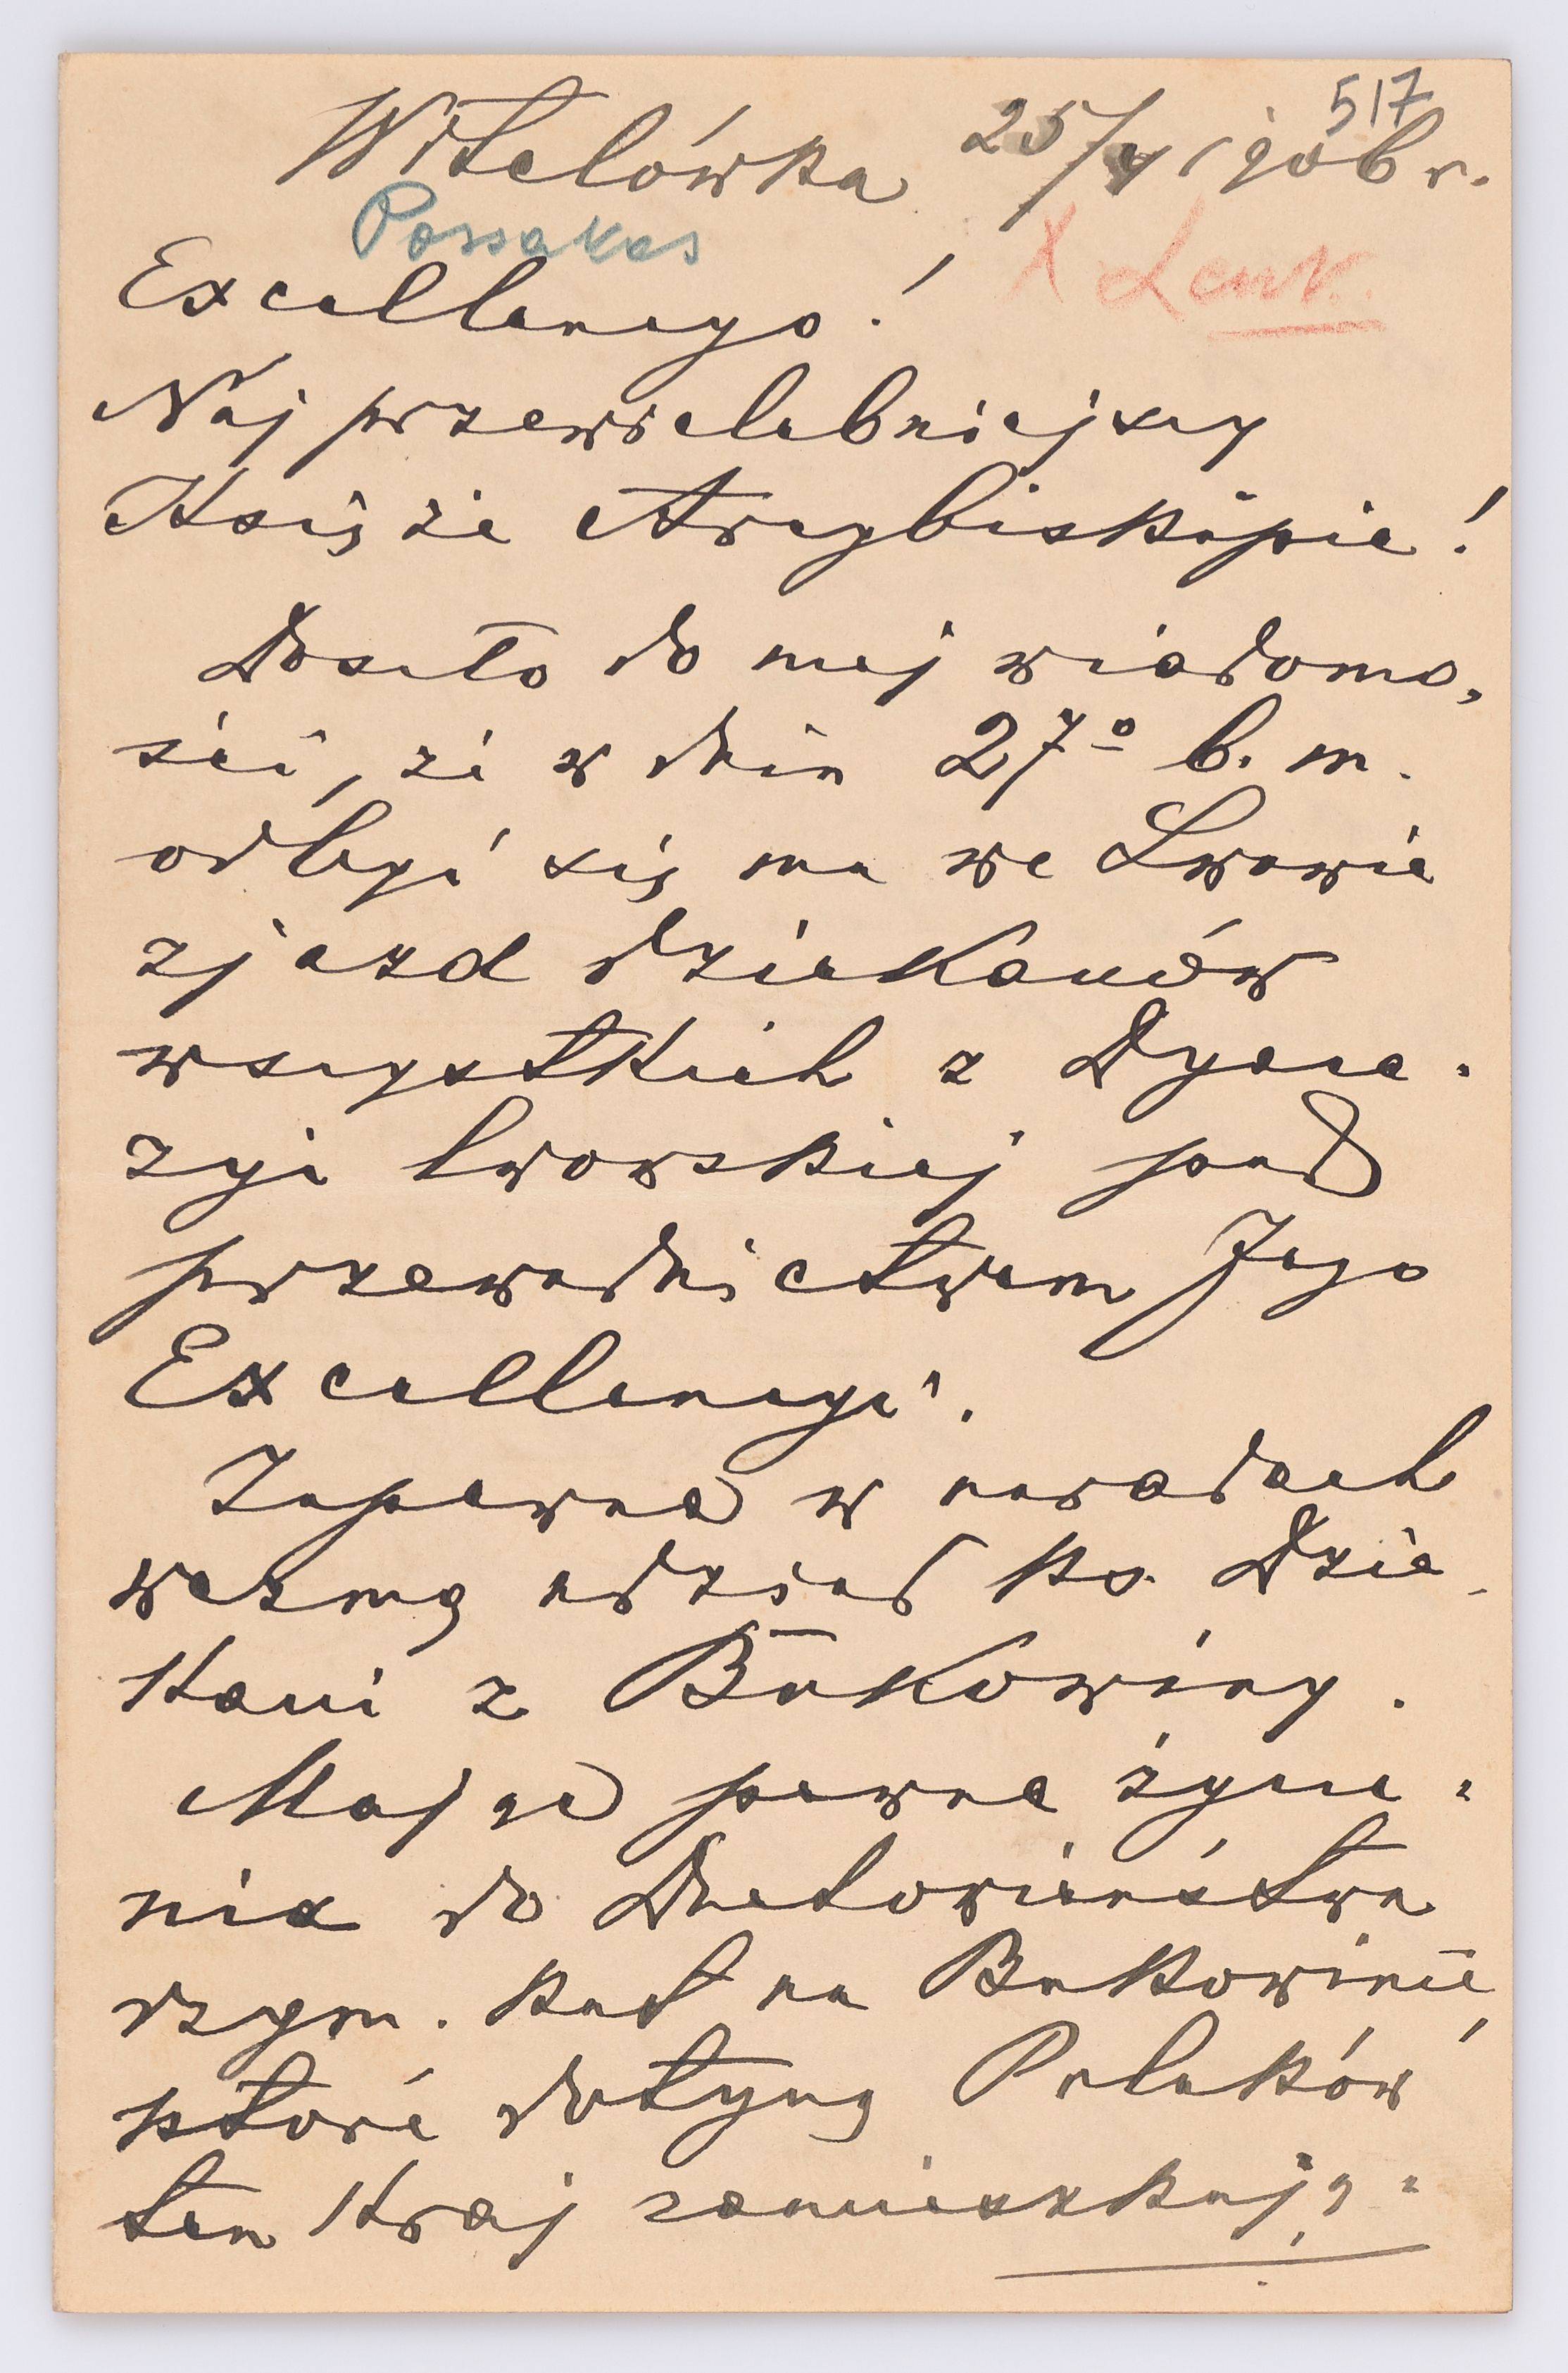 517
Witelówka 25/4 1906 r.
Possakas
X Lenk.
Excellencyo!
Najprzewielebniejszy
Księże Arcybiskupie!
Doszło do mej wiadomo,
ści, że w dniu 27º b. m.
odbyć się ma we Lwowie
zjazd dziekanów
wszystkich z Dyece-
zyi lwowskiej pod
przewodnictwem Jego
Excellencyi.
Zapewne w naradach
wezmą udział ks. Dzie-
kani z Bukowiny.
Mając pewne życze-
nia do Duchowieństwa
rzym. kat na Bukowinie,
które dotyczą Polaków
ten kraj zamieszkują-